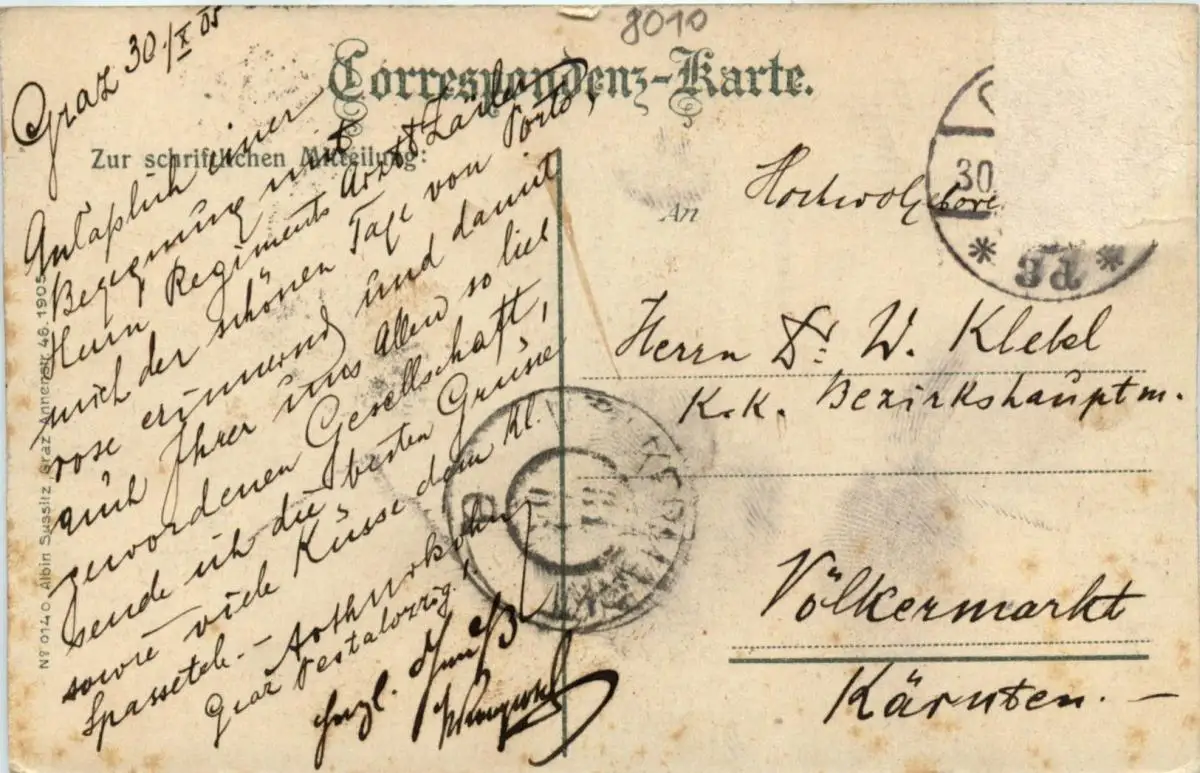 8010
Correspondenz-Karte.
Zur schriftlichen Mitteilung:
Graz 30./X 05
Anläßlich einer
Begegnung mit
Herrn Regiments Arzt
mich der schönen Tage von Porto,
rose erinnernd und damit
auch Ihrer uns Allen so lieb
gewordenen Gesellschaft,
sende ich die besten Grüße
sowie viele Küsse dem kl.
Spassetel. –
Graz
An
Hochwolgebore
Herrn Dr. W. Klebl
K.k. Bezirkshauptm.
Völkermarkt
Kärnten. –
30
* 3d *
Nº 0140 Albin Sussitz, Graz Annenstr. 46. 1905